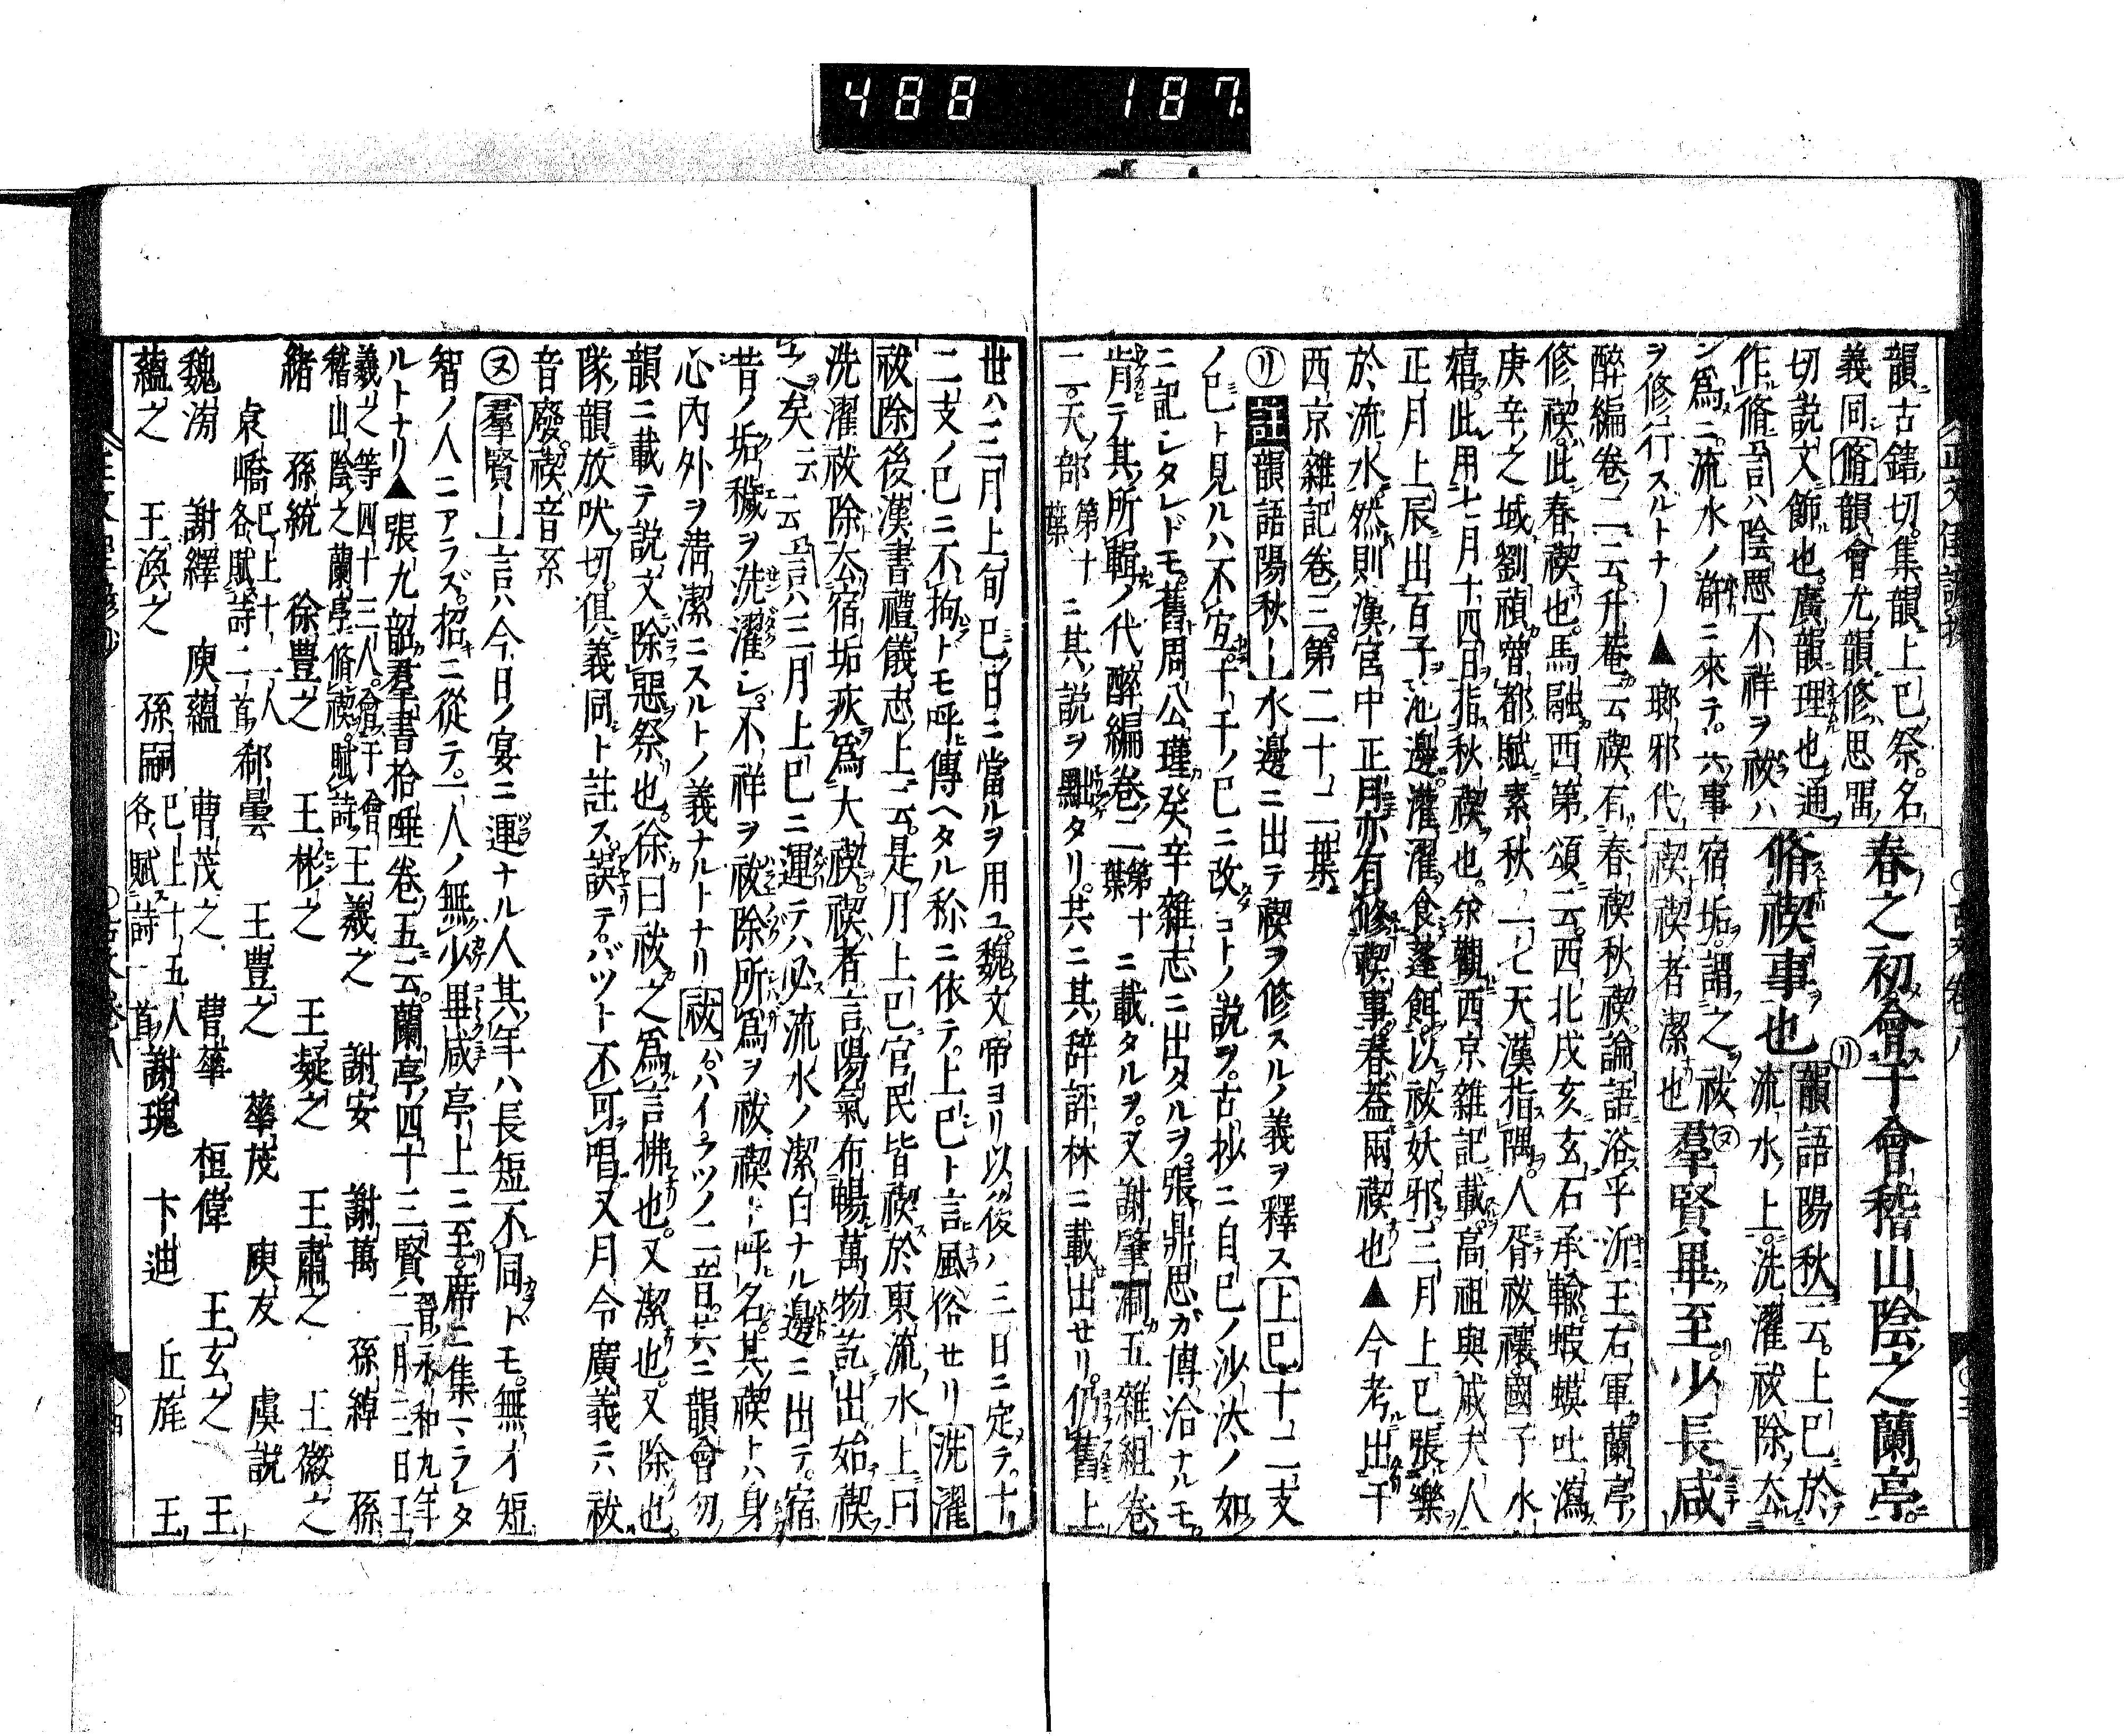 488 187.
韻古鎋切。集韻上巳祭名
義同脩韻會尤韻修思畱
切説文飾也。廣韻理也通
作脩言ハ陰惡不祥ヲ祓ハ
ン爲ニ。流水ノ濒ニ來テ。六事
ヲ修行スルトナ丿▲瑯邪代
春之初會于會稽山陰之蘭亭
脩禊事也
韻語陽秋云。上巳於
流水上。洗濯祓除去
宿垢。謂之祓
禊禊者潔也
羣賢畢至少長咸
醉編卷二云。升菴云禊有春禊秋禊。論語浴乎沂王右軍蘭亭
修禊。此春禊也。馬融西第頌云。西北戌亥玄石承輸。蝦蟆吐瀉
庚辛之域劉禎魯都賦素秋二七天漢指隅。人胥祓禳國子水
嬉此用七月十四日指秋禊也。余觀西京雜記載高祖與戚夫人
正月上辰出百子池邊灌濯食蓬餌以祓妖邪。三月上巳張樂
於流水。然則漢宮中正月亦有修禊事。春蓋兩禊也▲今考出于
西京雜記卷三第二十二葉
リ註韻語陽秋ー水邊ニ出テ禊ヲ修スルノ義ヲ釋ス上巳十二支
ノ巳ト見ルハ不宜。干千ノ巳ニ改コトノ説ヲ。古抄ニ自巳ノ沙汰ノ如
ニ記シタレドモ。舊周公瑾癸辛雜志ニ出タルヲ。張鼎思ガ博洽ナルモ
肯テ其所輯ノ代醉編卷二第十葉ニ載タルヲ。又謝肇淛五雜組卷
二天部第十葉ニ其説ヲ黜タリ。共ニ其辞評林ニ載出セリ。仍舊上
世ハ三月上旬巳ノ日ニ當ルヲ用ユ。魏文帝ヨリ以後ハ三日ニ定テ。十
二支ノ巳ニ不拘トモ呼傳ヘタル称ニ依テ。上巳ト言風俗セリ洗濯
祓除後漢書禮儀志上云。是月上巳官民皆禊於東流水上曰
洗濯祓除去宿垢疢爲大禊。禊者言陽氣布暢萬物訖出始禊
之矣云云言ハ三月上巳ニ運テハ必流水ノ潔白ナル邊ニ出テ。宿
昔ノ垢穢ヲ洗濯シ。不祥ヲ祓除所爲ヲ祓禊ト呼名。其禊トハ身
心内外ヲ清潔ニスルトノ義ナルトナリ祓ハハイフツノ二音。共ニ韻會勿
韻ニ載テ説文除惡祭也。徐曰祓之爲言拂也。又潔也。又除也。
隊韻放吠切。倶義同ト註ス。誤テバツト不可唱。又月令廣義ニハ祓
音廢。禊音系
ヌ羣賢ー言ハ今日ノ宴ニ運ナル人其年ハ長短不同トモ。無才短
智ノ人ニアラズ。招ニ從テ。一人ノ無少畢咸亭上ニ至。席ニ集ラレタ
ルトナリ▲張九韶羣書拾唾卷五云。蘭亭四十三賢晉永和九年二月三日王
羲之等四十三人。會于會稽山陰之蘭亭脩禊。賦詩王羲之 謝安 謝萬 孫綽 孫
緒 孫統 徐豊之 王彬之 王凝之 王肅之 王徽之
袁嶠已上十一人各賦詩二首郗曇 王豊之 華茂 庾友 虞説
魏滂 謝繹 庾蘊 曹茂之 曹華 桓偉 王玄之 王
蘊之 王渙之 孫嗣已上十五人各賦詩一首謝瑰 卞迪 丘旄 王